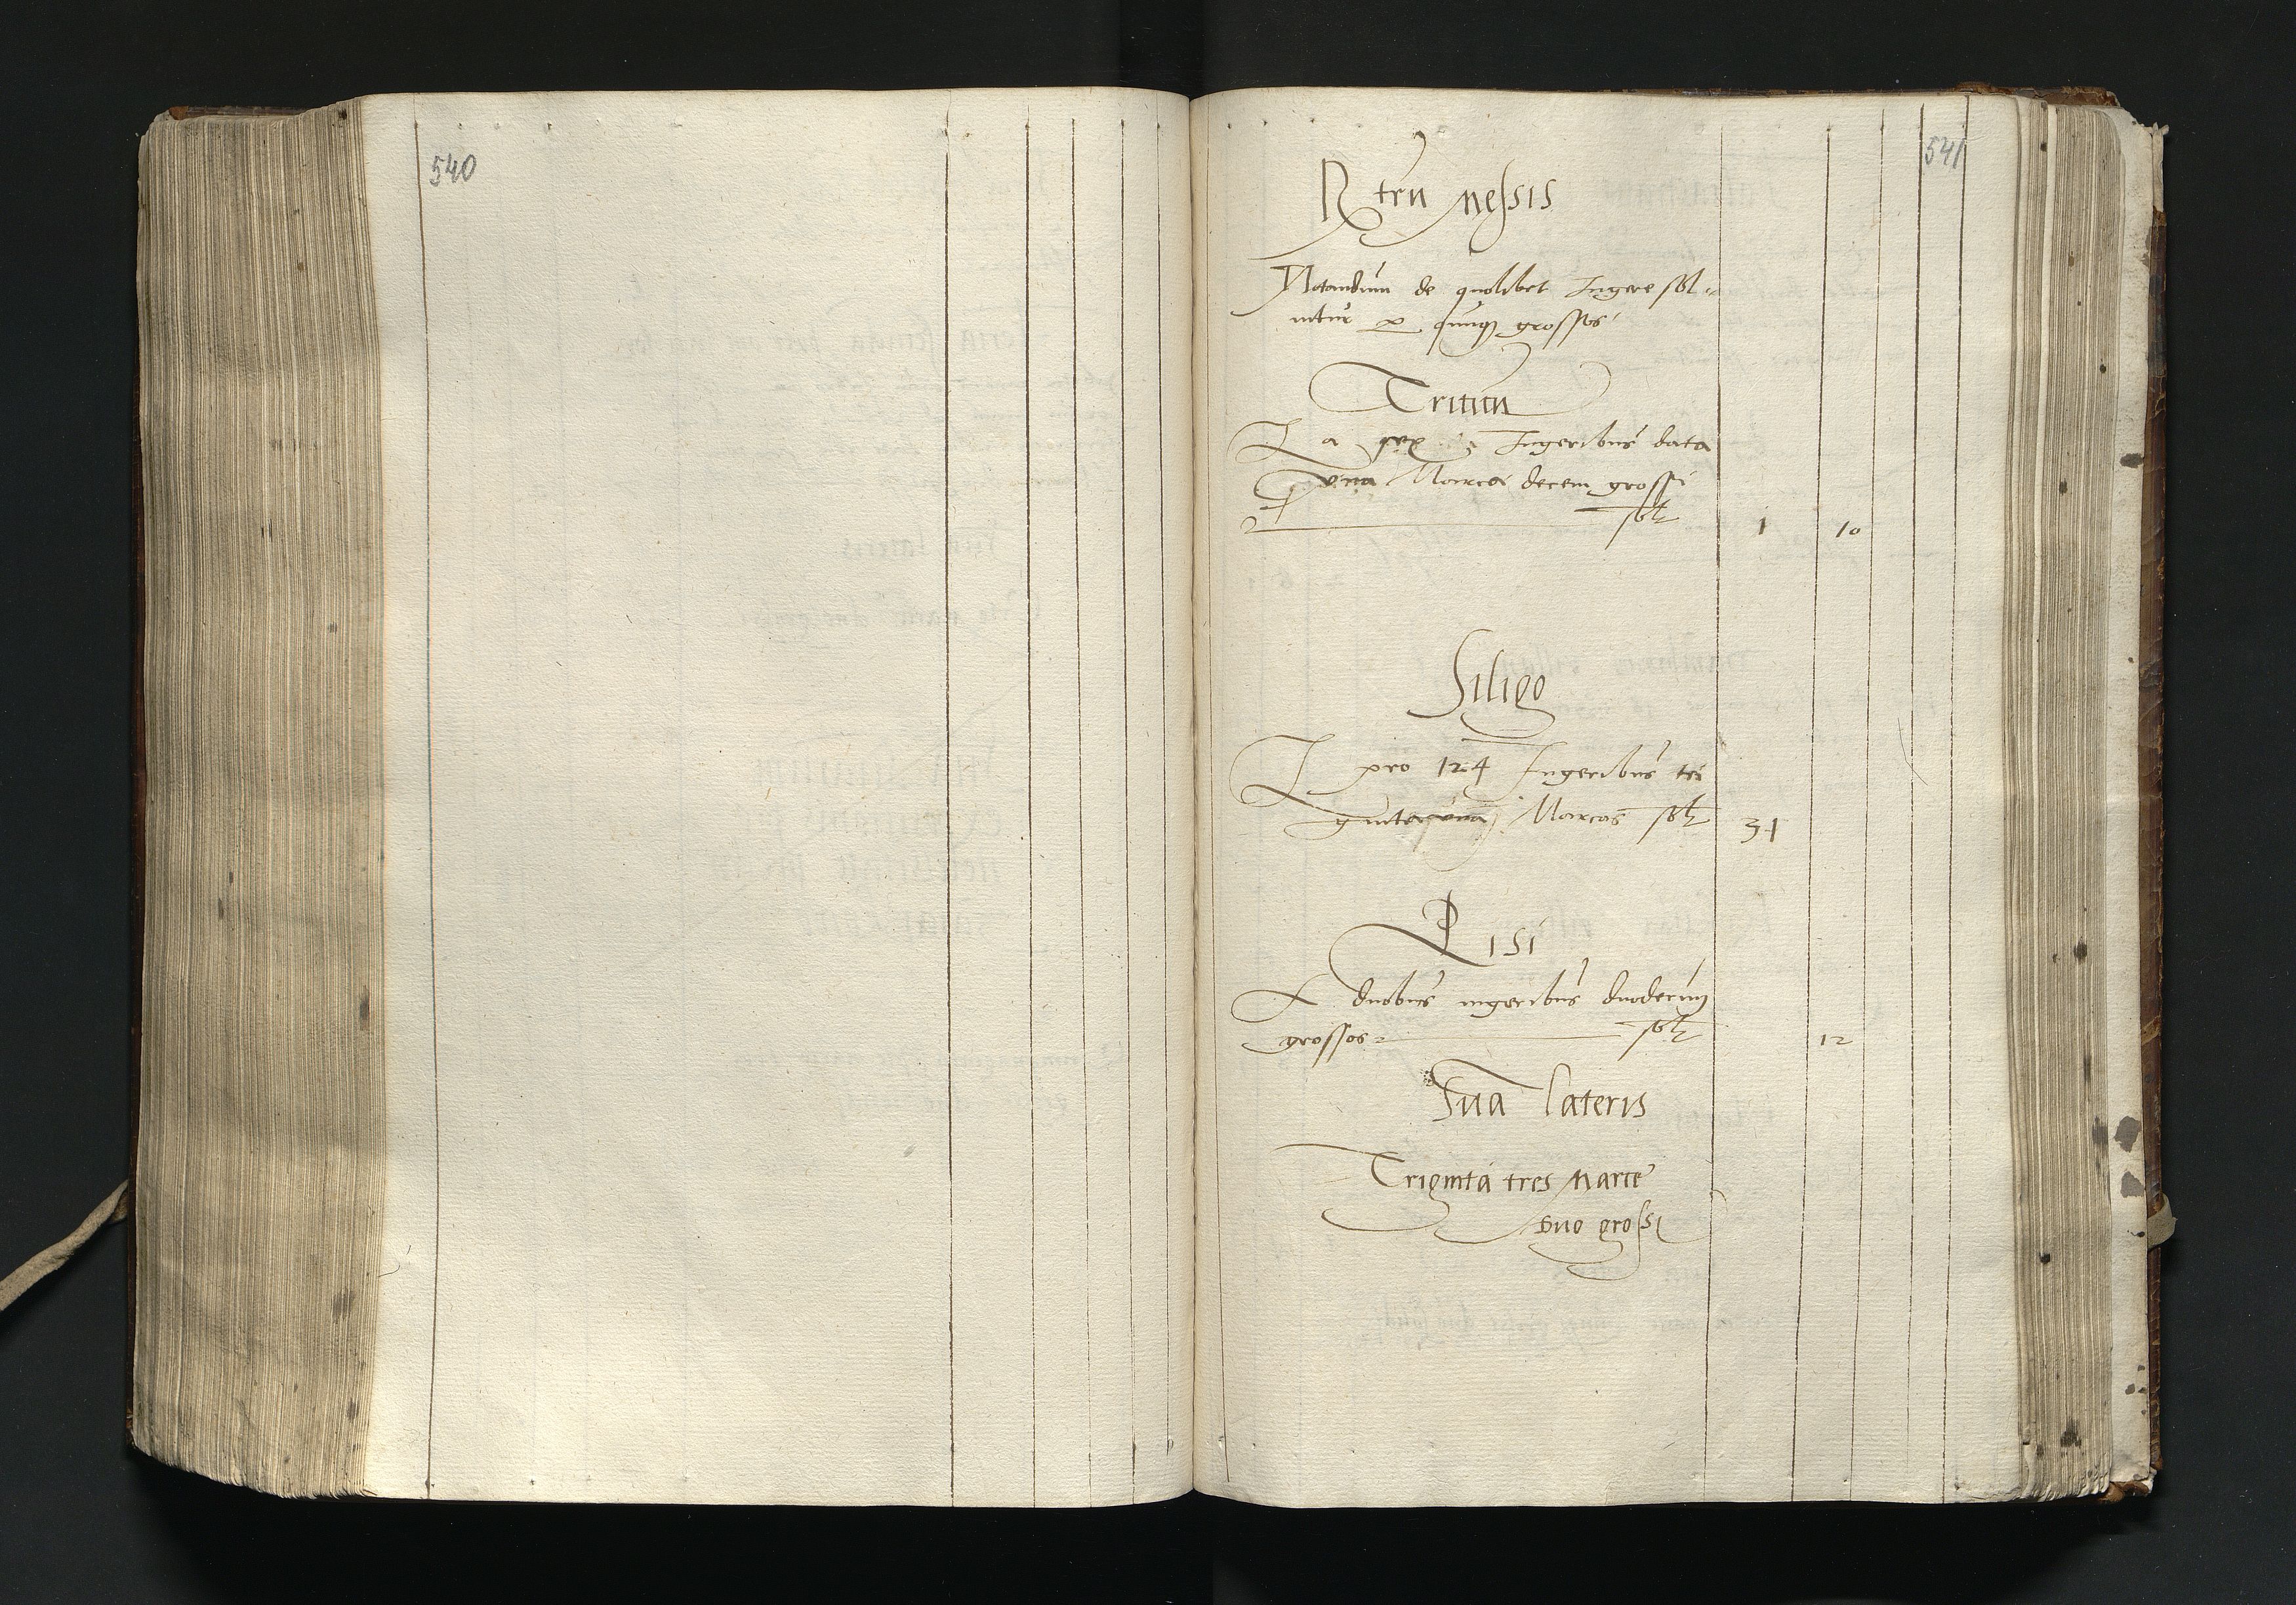 540
541
Rtrū Messis
Notandum de quolibet Iugere sol-
uitur per quinq grossos
Triticū
I a sex Iugeribus data
una Marca decem grossi
solt 1 10
Siligo
I pro 124 Iugeribus tri
gintauna Marcas solt 31
Pisi
A duobus iugeribus duodecim
grossos solt 12
Sūa Lateris
Triginta tres Marce
Duo grossi